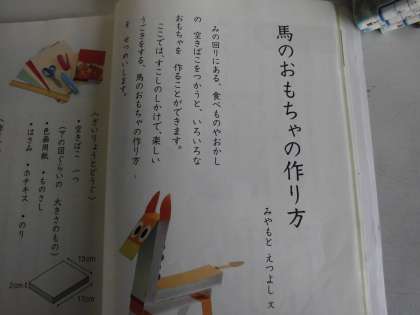 馬のおもちゃの作り方
みやもと えつよし 文
みの回りにある、食べものやおかし
の 空きばこをつかうと、いろいろな
おもちゃを 作ることができます。
ここでは、すこしのしかけで、楽しい
うごきをする、馬のおもちゃの作り方
を せつめいします。
〈ざいりょうとどうぐ〉
・空きばこ 一つ
（下の図ぐらいの 大きさのもの）
・色画用紙 ・ものさし
・はさみ ・ホチキス ・のり
12cm
17cm
2cm